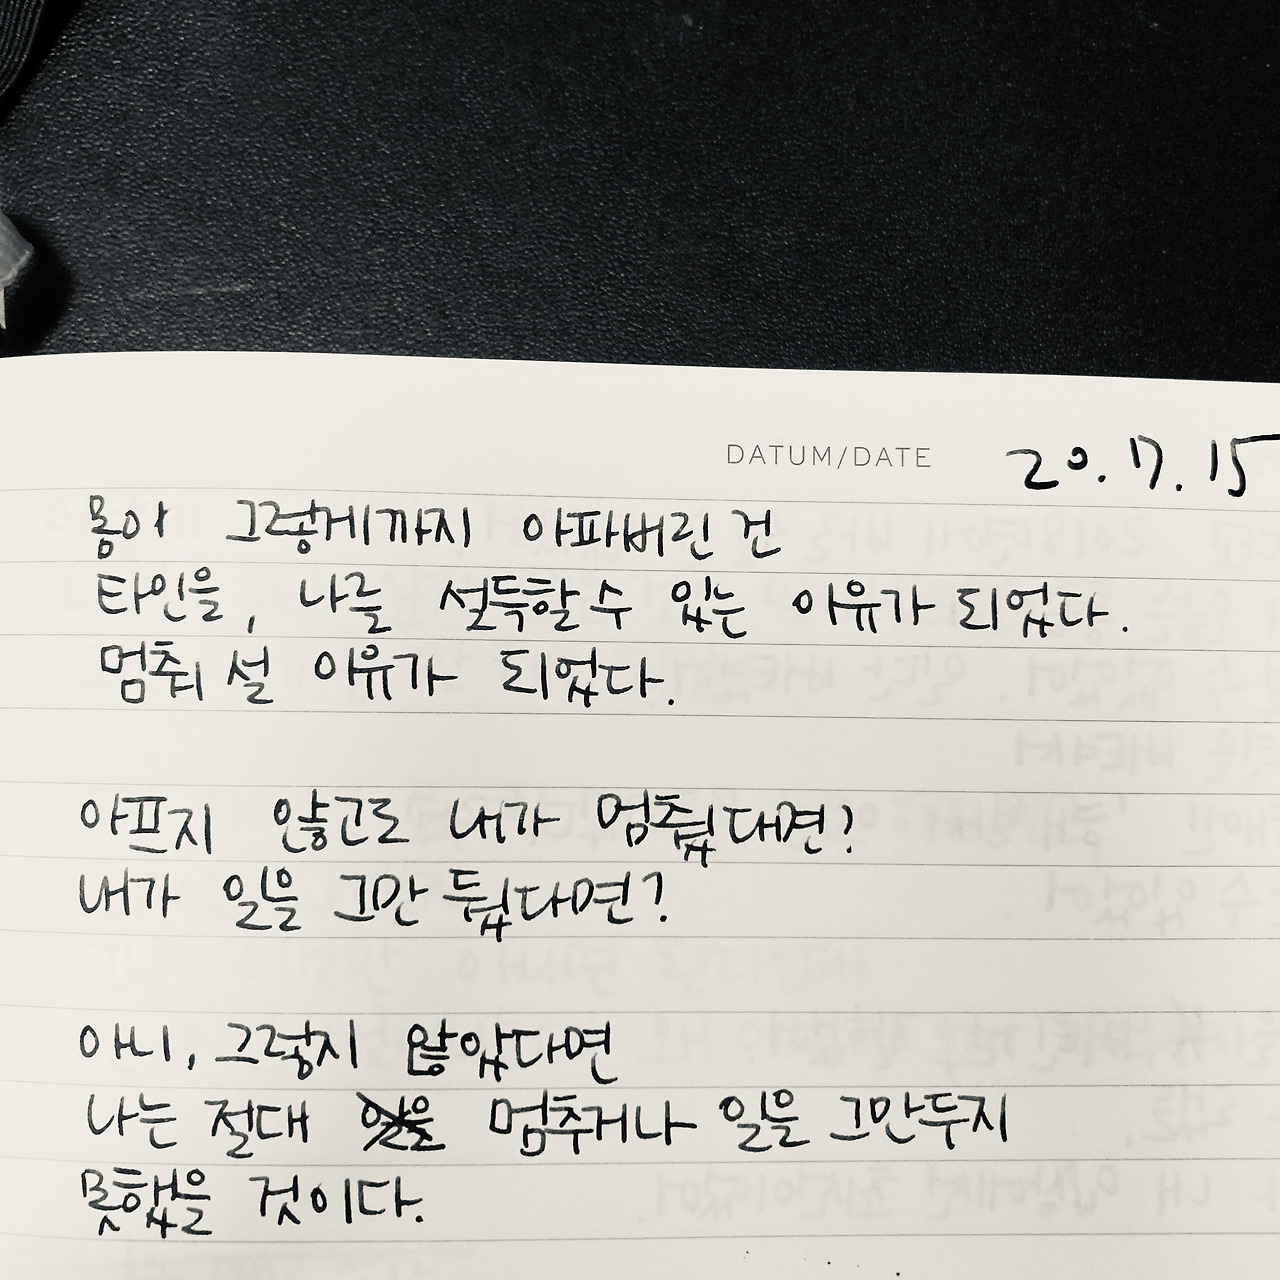 DATUM/DATE 20.7.15
몸이 그렇게까지 아파버린 건
타인을, 나를 설득할 수 있는 이유가 되었다.
멈춰 설 이유가 되었다.
아프지 않고도 내가 멈췄다면?
내가 일을 그만 뒀다면?
아니, 그렇지 않았다면
나는 절대 일을 멈추거나 일을 그만두지
못했을 것이다.